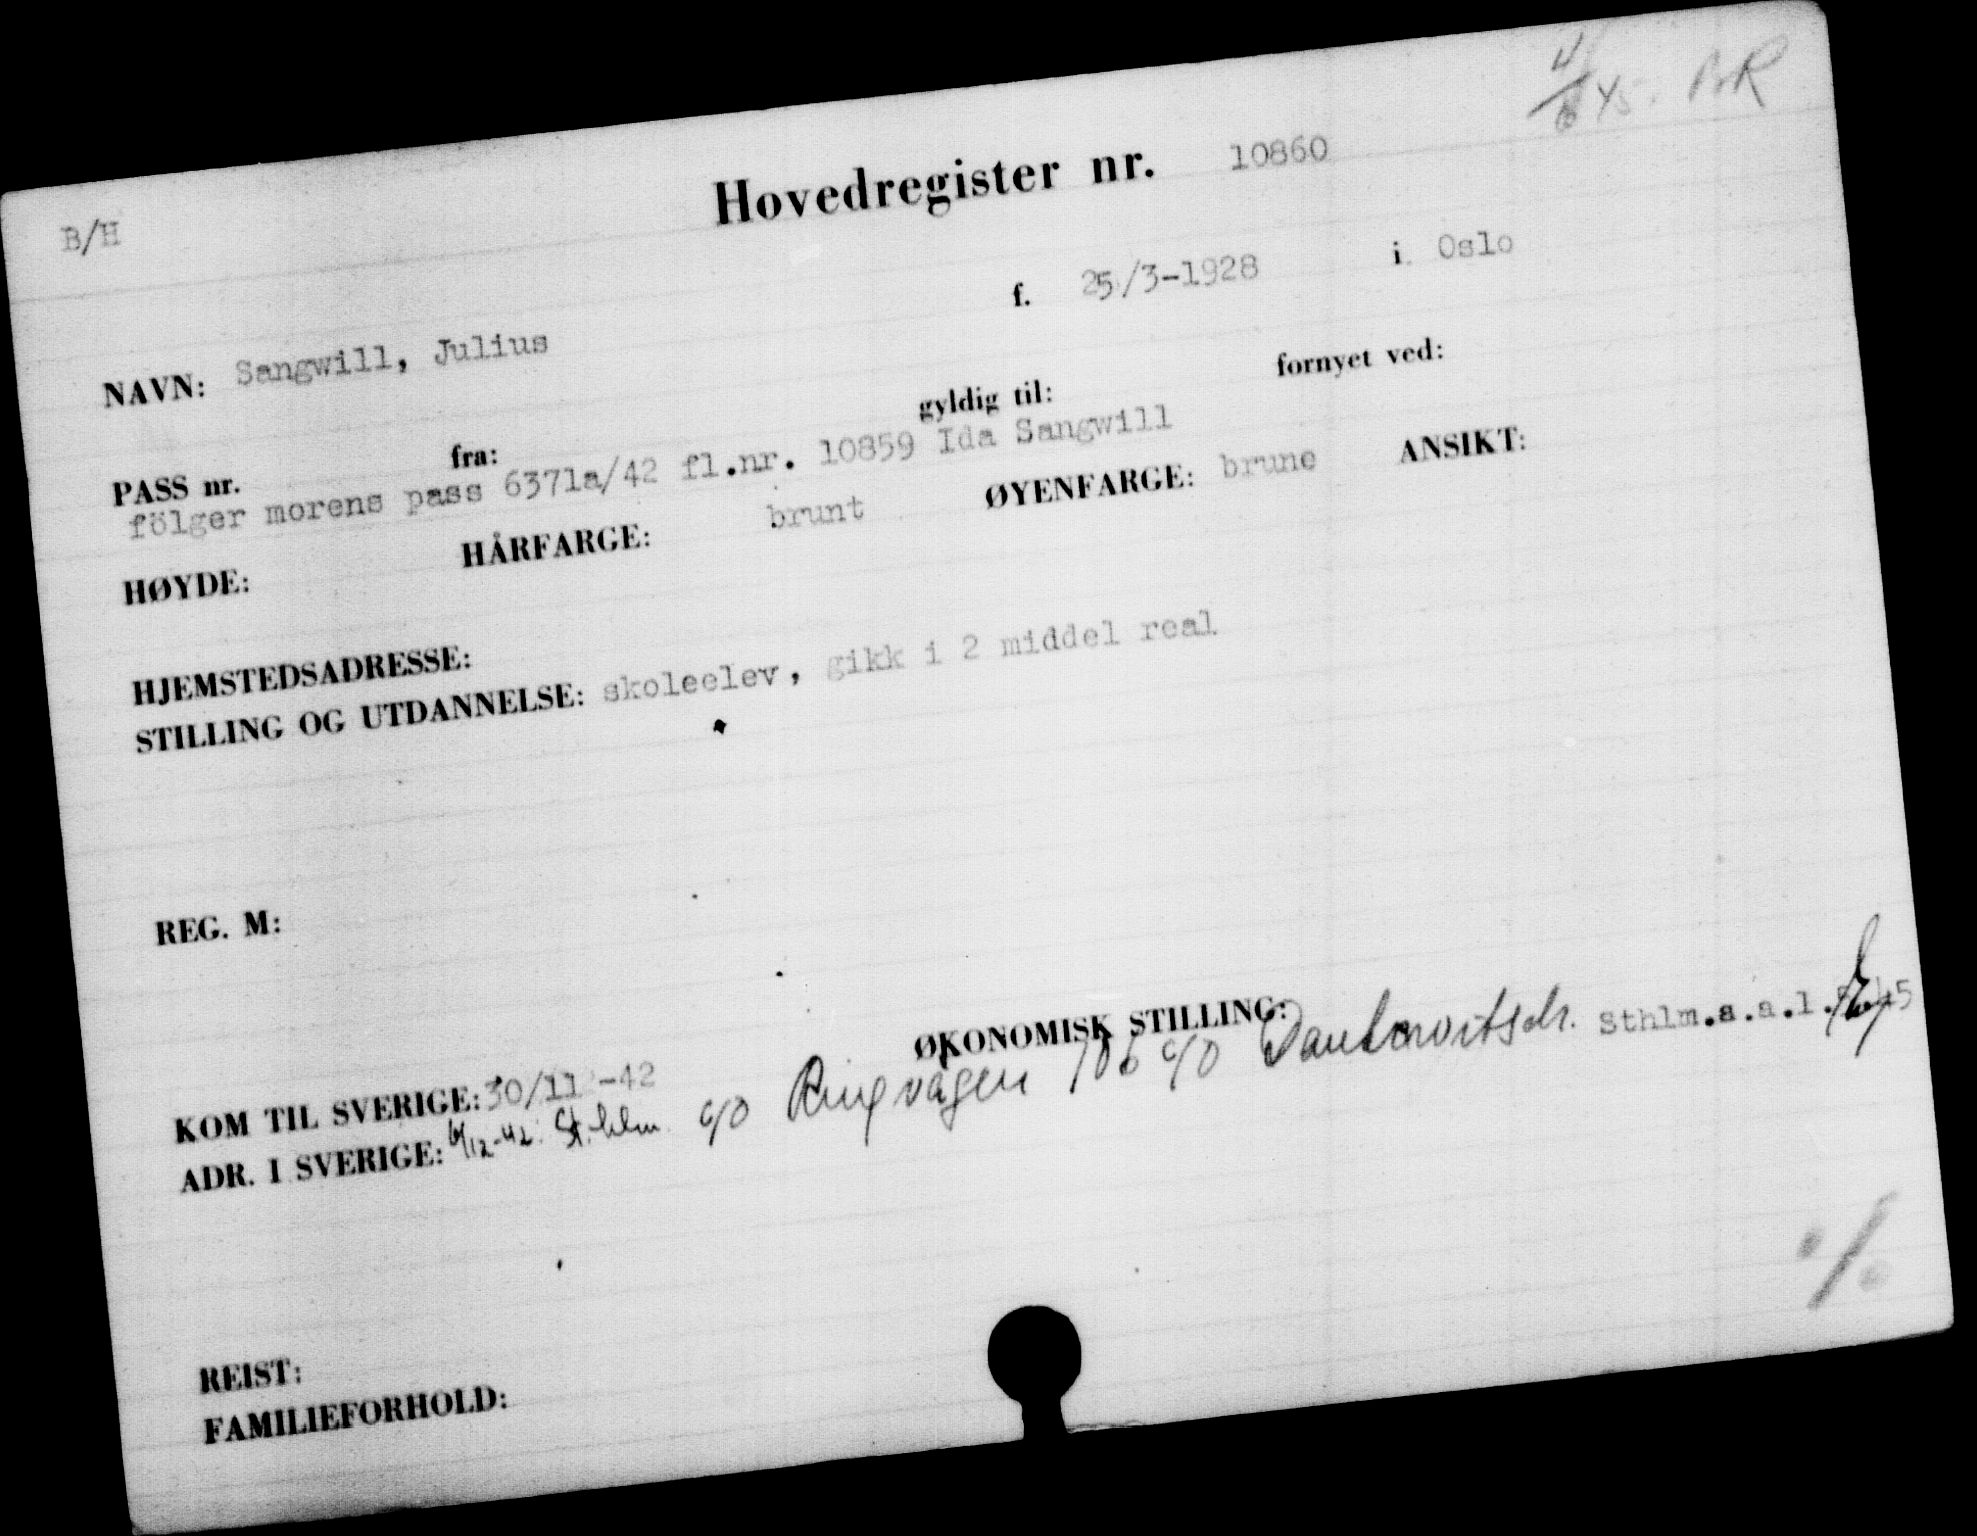 4/6 45. BR
B/H
Hovedregister nr. 10860
NAVN: Sangwill, Julius f. 25/3-1928 i Oslo
PASS nr. fra: gyldig til: fornyet ved:
fölger morens pass 6371a/42 fl.nr. 10859 Ida Sangwill
HØYDE: HÅRFARGE: brunt ØYENFARGE: brune ANSIKT:
HJEMSTEDSADRESSE:
STILLING OG UTDANNELSE: skoleelev, gikk i 2 middel real
REG. M:
ØKONOMISK STILLING:
KOM TIL SVERIGE: 30/11-42
ADR. I SVERIGE: 6/12-42. Sthlm. c/o Ringvägen 106 c/o Sthlm.a.a.l.
REIST:
FAMILIEFORHOLD: